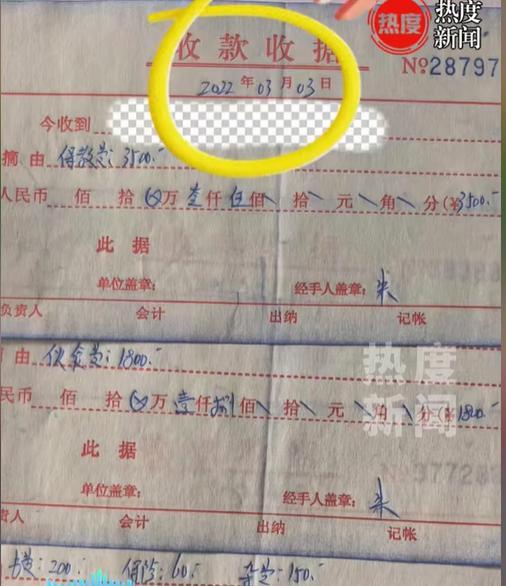 热度
热度
新闻
收款收据
No 28797
2022年03月03日
今收到
摘由 保教费：3500.-
人民币 佰 拾 万 仟 佰 拾 元 角 分（¥3500.-
此据
单位盖章： 经手人盖章： 朱
负责人 会计 出纳 记帐
由 伙食费：1800.-
民币 佰 拾 万 壹仟捌佰 拾 元 角 分（¥1800.-
热度
新闻
此据
单位盖章： 经手人盖章： 朱
责人 会计 出纳 记帐
200.- 保险：60.- 杂费：150.-